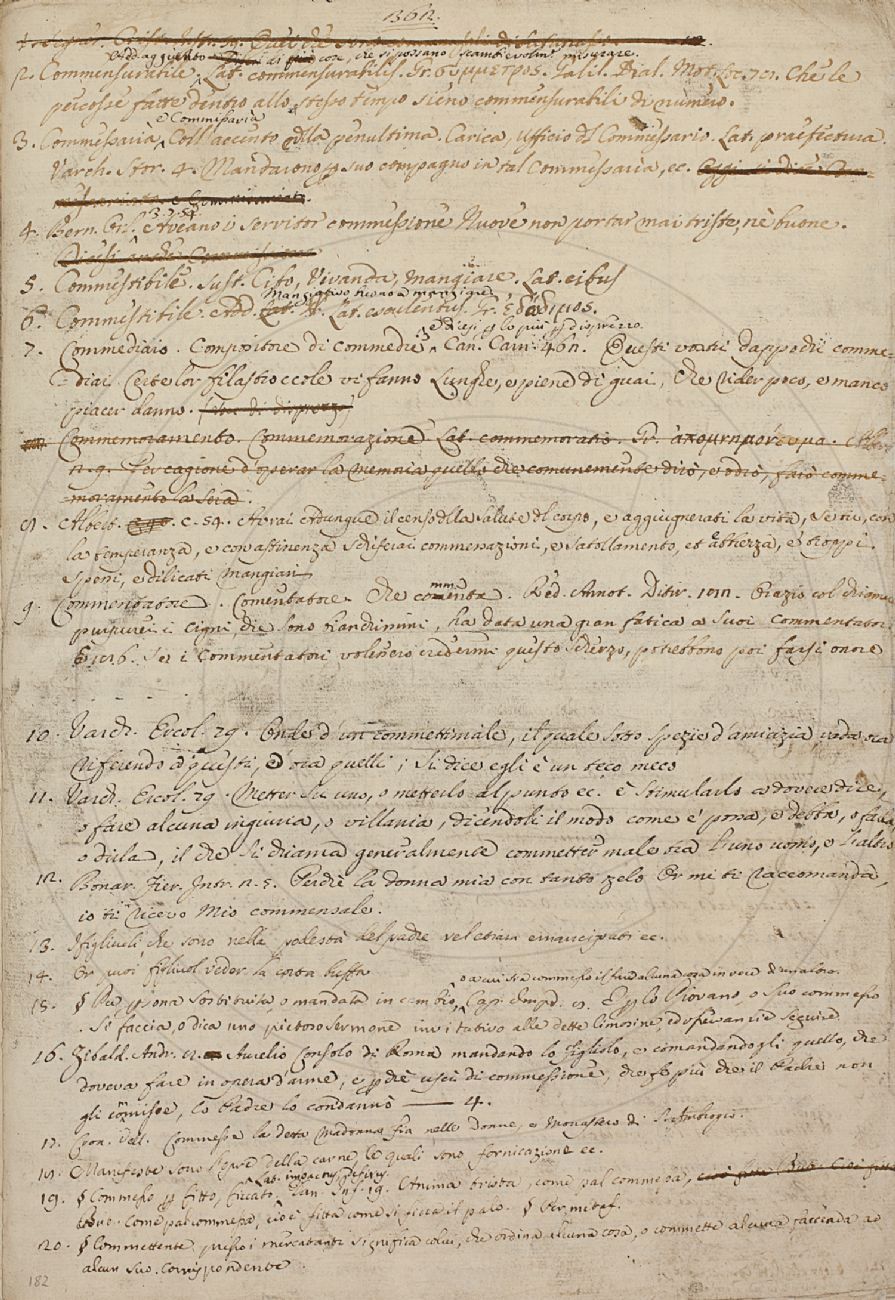 362.
2. Commensurabile. Add. aggiunto di cose, che si possono scambievolm. misurare.
Lat. commensurabilis. Gr. σύμμετρος. Galil. Dial. Mot. Loc. 701. Che le
percosse fatte dentro allo stesso tempo sieno commensurabili di numero.
3. Commessaria, e Commissaria Coll' accento sulla penultima. Carica, ufficio del Commissario. Lat. praefectura.
Varch. Stor. 4. Mandarono per suo compagno in tal Commessaria, ec.
4. Bern. Orl. 2. 3. 54. Aveano i servitor commessione Nuove non portar mai triste, nè buone.
5. Commestibile. Sust. Cibo, Vivanda, mangiare. Lat. cibus
6. Commestibile Add. Mangiativo, buono a mangiare. Lat. esculentus. Gr. ἐδώδιμος.
7. Commediaio. Compositore di commedie, e dicesi per lo più per disprezzo. Can. Carn. 462. Questi vostri dappochi comme=
=diai Certe lor filastroccole vi fanno Lunghe, e piene di guai, Che rider poco, e manco
piacer danno.
Commemoramento. Commemorazione. Lat. commemoratio. Gr.
2. 9. Per cagione d'operar la memoria quello che comunemente dirò, e odiò, farò comme=
=moramento la sera.
8. Albert. c. 54. Avrai adunque il censo della salute del corpo, e aggiugnerati la vita, se tu, con
la temperanza, e con astinenza schiferai commenazioni, e satollamento, et ebbrezza, e troppi
sponi, e dilicati mangiari
9. Commentatore. Comentatore. Che commenta. Red. Annot. Ditir. 102. Orazio col chiamar
purpurei i cigni, che sono bianchissimi, ha data una gran fatica a suoi commentatori.
E 126. Se i commentatori volessero credermi questo scherzo, potrebbono poi farsi onore
10. Varch. Ercol. 79. Onde d'un commettimale, il quale sotto spezie d'amicizia vada ora
riferendo a questi, e ora quelli, si dice egli è un teco meco
11. Varch. Ercol. 79. Metter su uno, o metterlo al punto ec. è stimularlo a dover dire,
o fare alcuna ingiuria, o villania, dicendoli il modo come e' possa, e debba, o farla
o dirla, il che si chiama generalmente commetter male ora l'uno uomo, e l'altro
12. Bonar. Fier. Intr. 2. 5. Perchè la donna mia con tanto zelo Or mi ti raccomanda,
io ti ricevo Mio commensale.
13. I figliuoli, che sono nella podestà del padre vel etiam emancipati ec.
14. Or puoi figliuol veder la corta buffa
15. § Per persona sostituita, o mandata in cambio, o a cui sia commesso il fare alcuna cosa in vece d'un altro. Cap. Impr. 9. E per lo Piovano, o suo commesso
si faccia, o dica uno pietoso sermone invitativo alle dette limosine, ed osservanzie seguire
16. Zibald. Andr. 12. Aurelio consolo di Roma mandando lo figliolo, e comandandogli quello, che
doveva fare in opera d'arme, e perchè uscì di commessione, che fe più che il Padre non
gli comisse, lo Padre lo condannò —— 4.
17. Cron. Vell. Commesse la detta Madonna Pia nelle Donne, o Monastero di S. Ambrogio.
18. Manifeste sono l'opre della carne, le quali sono fornicazione ec.
19. § Commesso per fitto, ficcato. Lat. impactus, defixus. Dan. Inf. 19. Anima trista, come pal commessa,
Buo. Come pal commessa, cioè fitta come si ficca il palo. § Per metaf.
20. § Commettente presso i mercatanti significa colui, che ordina alcuna cosa, o commette alcuna faccenda ad
alcun suo corrispondente
182